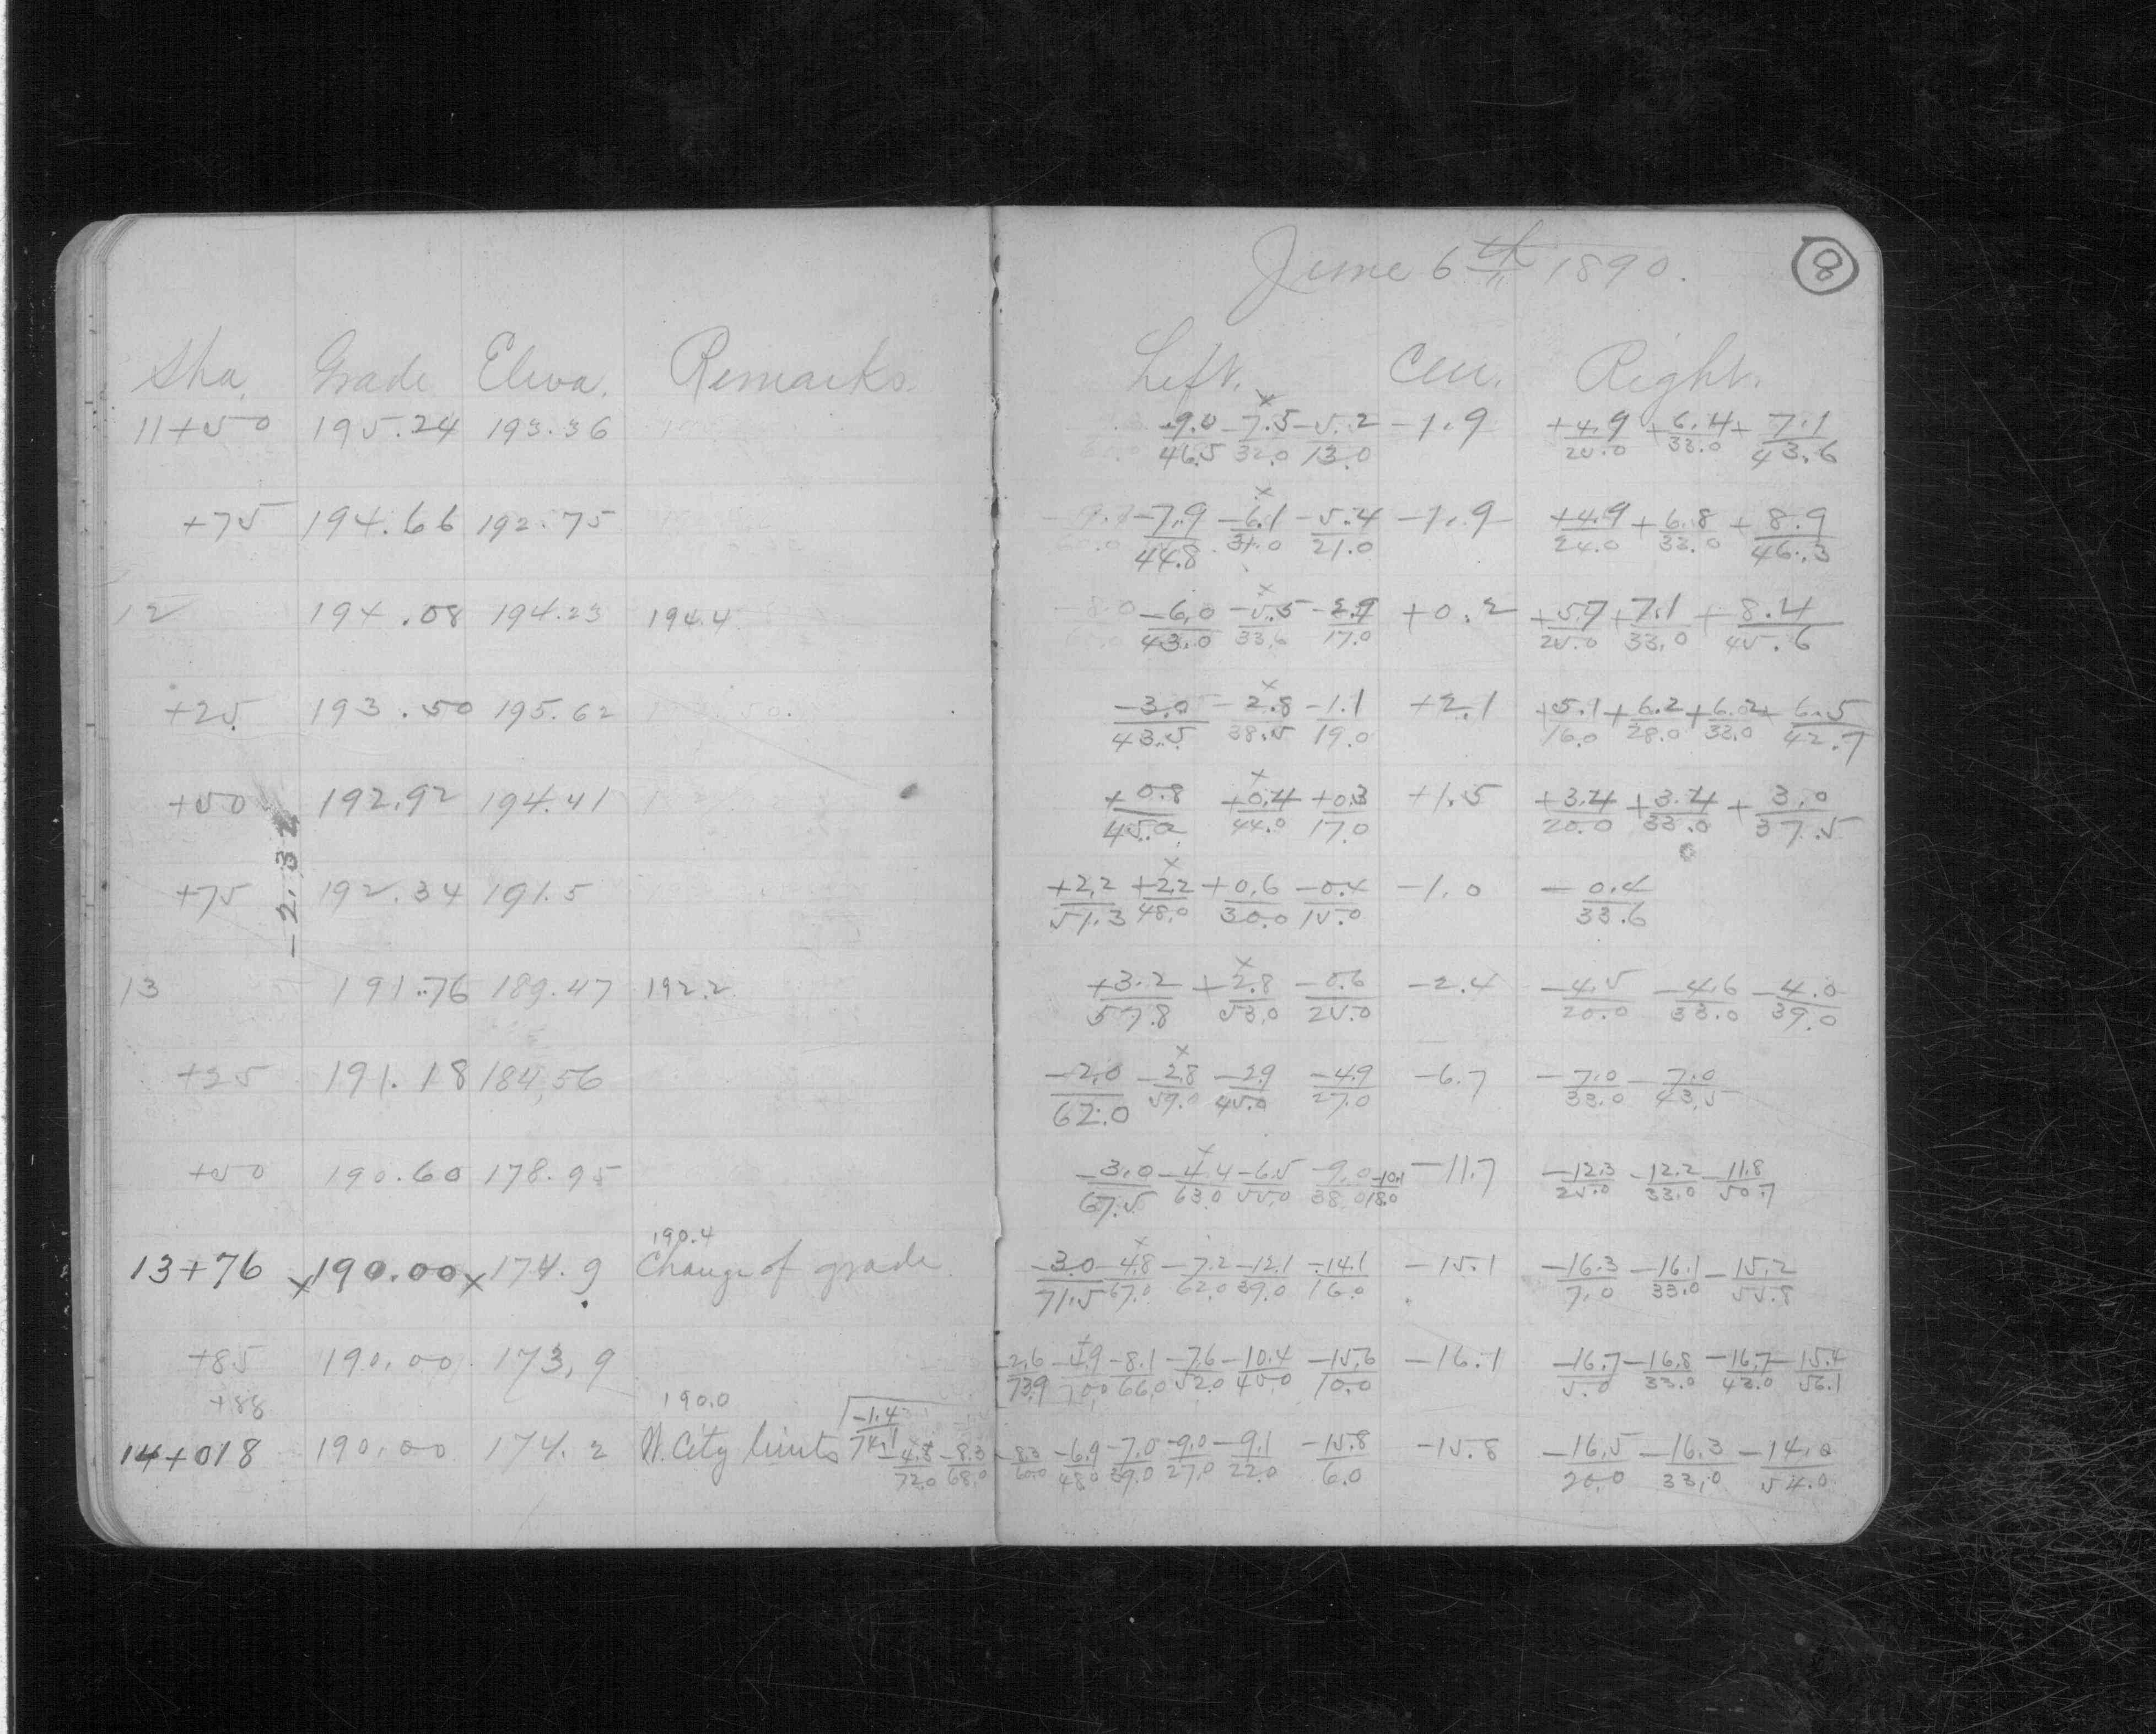 June 6th 1890.
8
Sta. Grade Eleva. Remarks. Left. Cen. Right.
11+50 195.24 193.36 -9.0/46.5 -7.5/32.0 -5.2/13.0 -1.9 +4.9/25.0 +6.4/33.0 +7.1/43.6
+75 194.66 192.75 -7.9/44.8 -6.1/31.0 -5.4/21.0 -1.9 +4.9/24.0 +6.8/33.0 +8.9/46.3
12 194.08 194.23 194.4 -6.0/43.0 -5.5/33.6 -2.9/17.0 +0.2 +5.7/25.0 +7.1/33.0 +8.4/45.6
+25 193.50 195.62 -3.0/43.5 -2.8/38.5 -1.1/19.0 +2.1 +5.1/16.0 +6.2/28.0 +6.2/33.0 +6.5/42.7
+50 192.92 194.41 +0.8/45.0 +0.4/44.0 +0.3/17.0 +1.5 +3.4/20.0 +3.4/33.0 +3.0/37.5
-2.32
+75 192.34 191.5 +2.2/51.3 +2.2/48.0 +0.6/30.0 -0.4/15.0 -1.0 -0.4/33.6
13 191.76 189.47 192.2 +3.2/57.8 +2.8/53.0 -0.6/25.0 -2.4 -4.5/20.0 -4.6/33.0 -4.0/39.0
+25 191.18 184.56 -2.0/62.0 -2.8/59.0 -2.9/45.0 -4.9/27.0 -6.7 -7.0/33.0 -7.0/43.5
+50 190.60 178.95 -3.0/67.5 -4.4/63.0 -6.5/55.0 -9.0/38.0 -10.1/18.0 -11.7 -12.3/25.0 -12.2/33.0 -11.8/50.7
190.4
13+76 x190.00x 174.9 Change of grade -3.0/71.5 -4.8/67.0 -7.2/62.0 -12.1/39.0 -14.1/16.0 -15.1 -16.3/7.0 -16.1/33.0 -15.2/55.8
+85 190.00 173.9 -2.6/73.9 -4.9/70.0 -8.1/66.0 -7.6/52.0 -10.4/40.0 -15.6/10.0 -16.1 -16.7/5.0 -16.8/33.0 -16.7/43.0 -15.4/56.1
+88 190.0
14+018 190.00 174.2 N. City limits -1.4/74.1 -4.8/72.0 -8.3/68.0 -8.3/60.0 -6.9/48.0 -7.0/39.0 -9.0/27.0 -9.1/22.0 -15.8/6.0 -15.8 -16.5/20.0 -16.3/33.0 -14.0/54.0